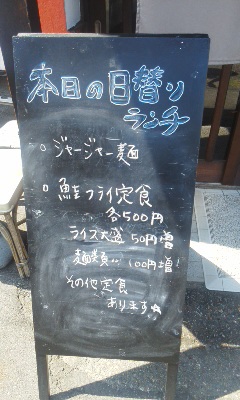 本日の日替り
ランチ
○ ジャージャー麺
○ 鮭フライ定食
各500円
ライス大盛 50円増
麺類〃 100円増!
その他定食
あります☆